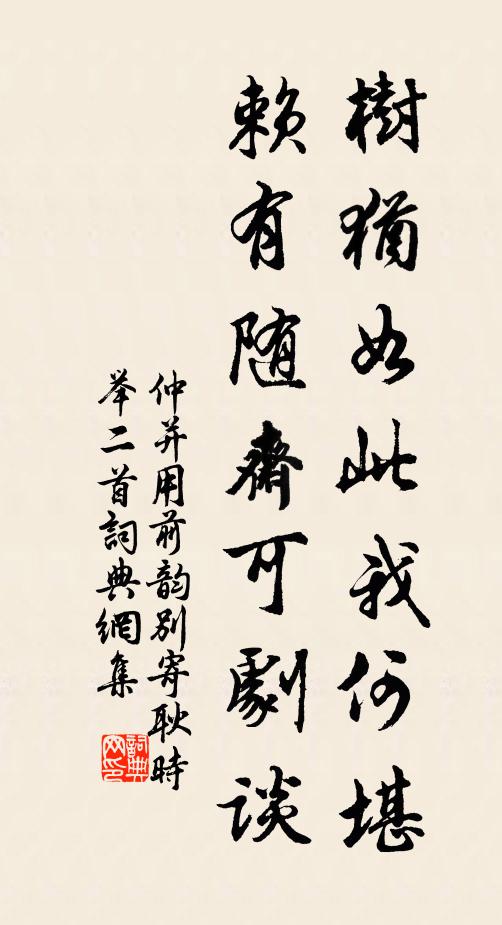 樹猶如此我何堪
賴有随齋可劇談
仲并用前韵别寄耿時
举二首詞典網集
詞典网印